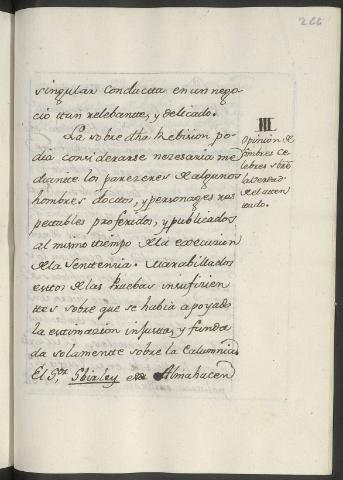 266
singular conducta en un nego-
cio tan relebante, y delicado.
La sobre dha Rebision po-
dia considerarse nezesaria me
diante los parezeres de algunos
hombres doctos, y personages res
petables proferidos, y publicados
al mismo tiempo de la execusion
de la Sentencia. Marabillados
estos de las Pruebas insufizien
ttes sobre que se habia apoyado
la estimazion injusta, y funda
da solamente sobre la Calumnia
El Sor. Shirley en Almahacen
III
Opinion de
hombres ce
lebres sbre
la verdad
de el aten
tado.